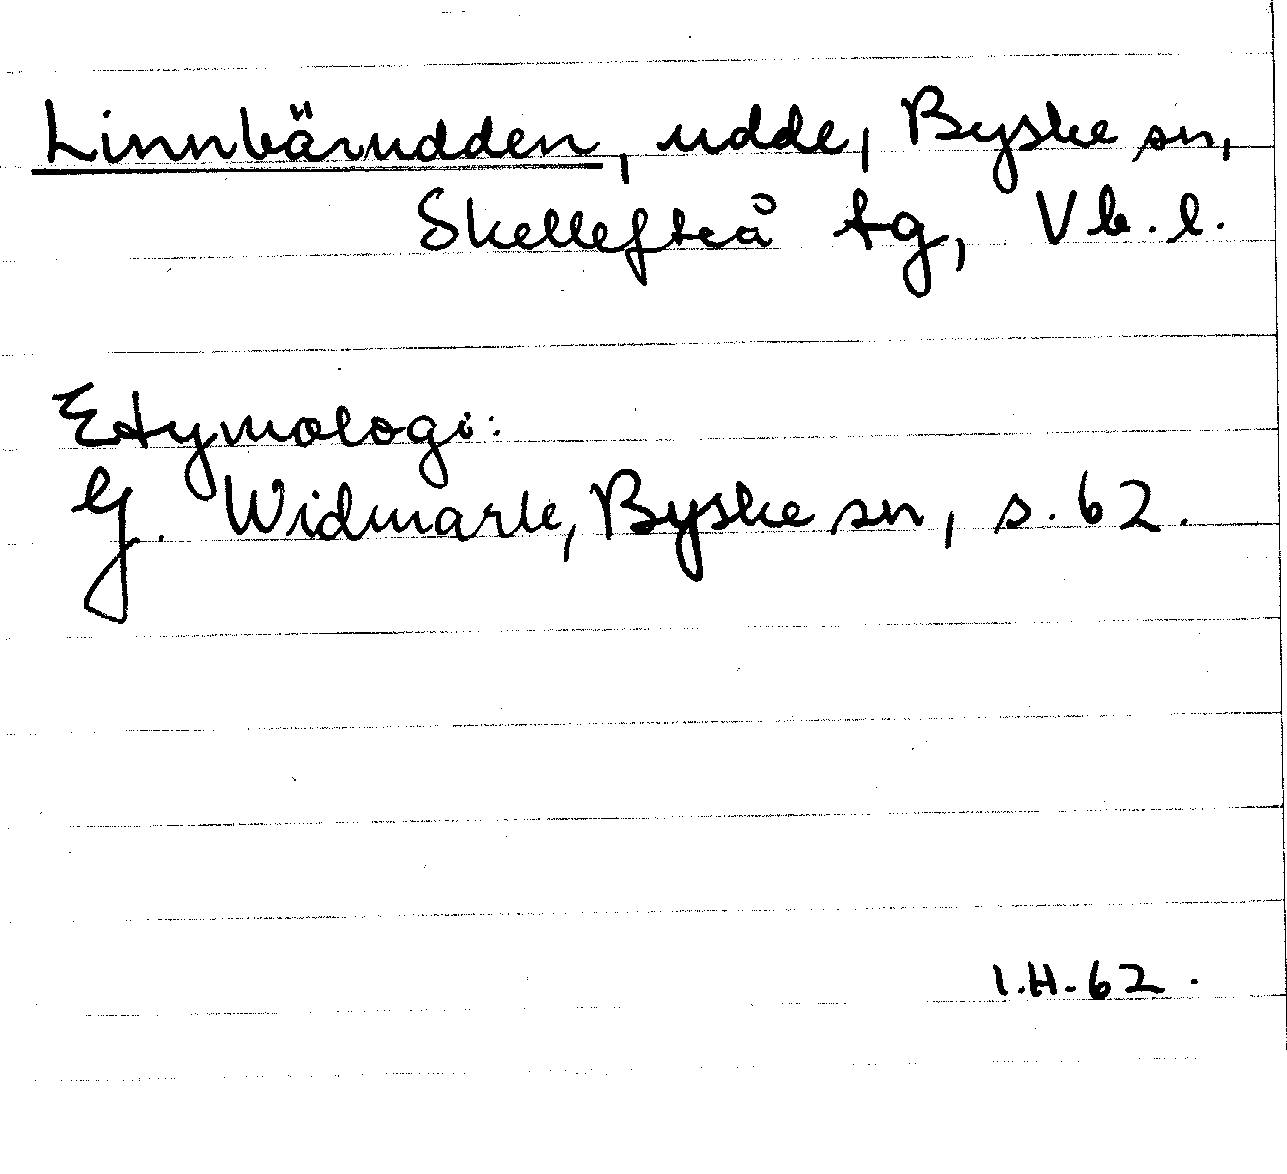 Linnbärudden, udde, Byske sn,
Skellefteå tg, Vb. l.
Etymologi:
G. Widmark, Byske sn, s. 62.
I.H.62.